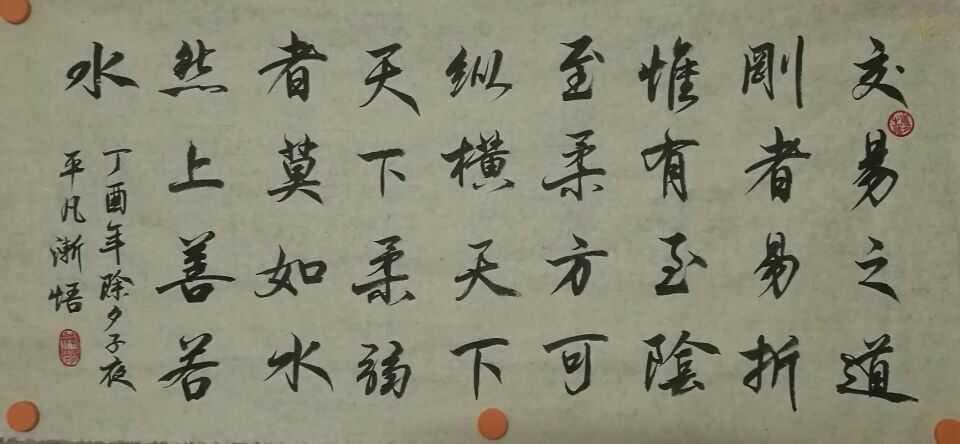 交易之道
剛者易折
惟有至陰
至柔方可
纵橫天下
天下柔弱
者莫如水
然上善若
水
丁酉年除夕子夜
平凡漸悟